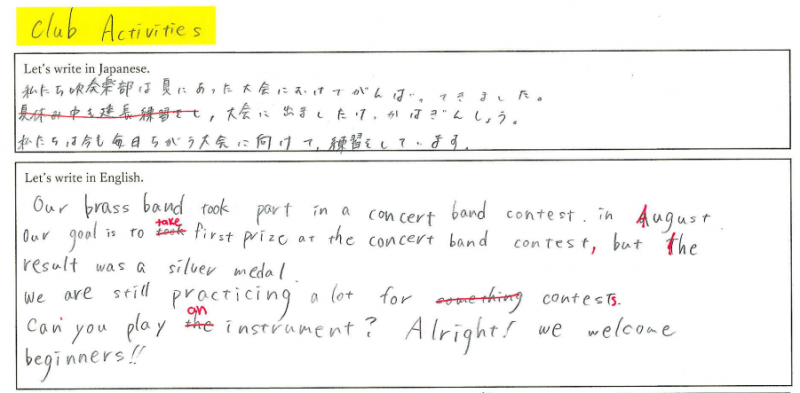 Club Activities
Let's write in Japanese.
私たち吹奏楽部は夏にあった大会にむけてがんばってきました。
夏休み中も延長練習をし、大会に出ましたけっかはぎんしょう。
私たちは今も毎日ちがう大会に向けて、練習をしています。
Let's write in English.
Our brass band took part in a concert band contest. in August
take
Our goal is to took first prize at the concert band contest, but the
result was a silver medal.
We are still practicing a lot for something contests.
an
Can you play the instrument? Alright! we welcome
beginners!!